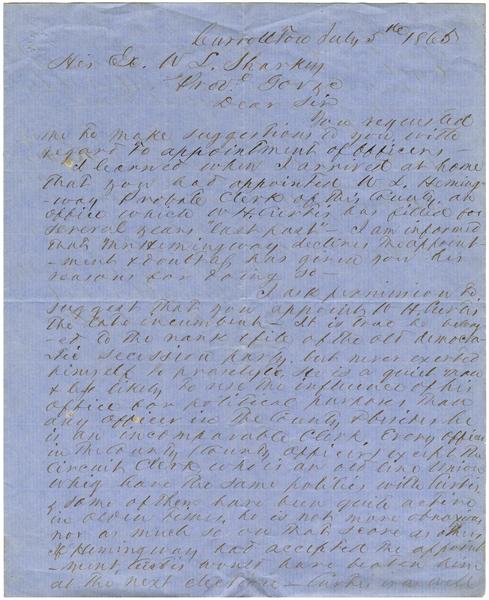 Carrollton July 5th 1865
His Ex. W L. Sharkey
Prov.l Gov &c
Dear Sir
You requested
me to make suggestions to you, with
regard to appointment of Officers -
I learned when I arrived at home
that you had appointed W L. Heming-
-way Probate Clerk of this County, an
office which W H. Curtis has filled for
several years last past - I am informed
that Mr Hemingway declines the appoint-
-ment & doubtless has given you his
reasons for doing so -
I ask permission to
suggest that you appoint W H. Curtis
the late incumbent - It is true he belong-
-ed to the rank & file of the old democra-
-tic secession party, but never exerted
himself to proselyte. He is a quiet man
& less likely to use the influence of his
office for political purposes than
any officer in the County & besides he
is an incomparable Clerk. Every officer
in the County (County Officers) except the
Circuit Clerk who is an old line Union
Whig have the same politics with Curtis,
& some of them have been quite active
in olden times. he is not more obnoxious
nor as much so on that score as others
If Hemingway had accepted the appoint-
-ment, Curtis would have beaten him
at the next election - Curtis was well